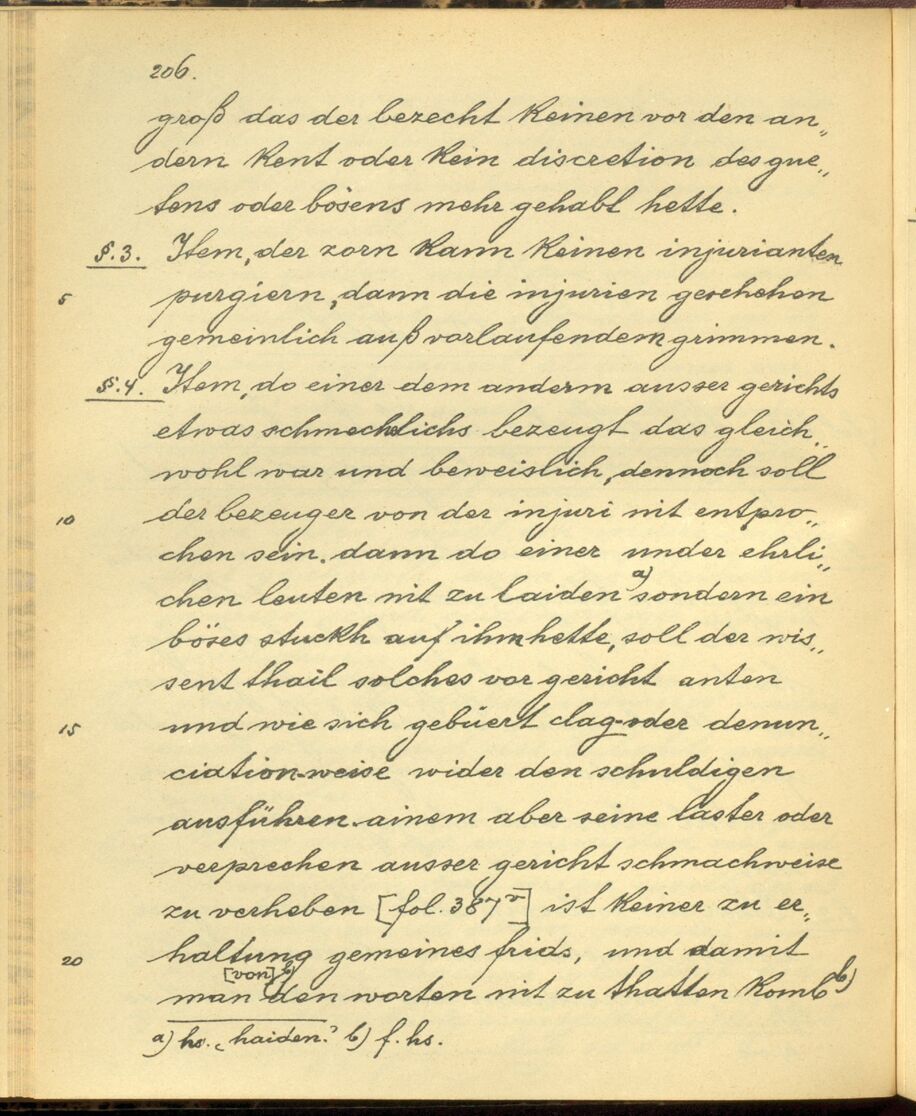 206.
groß das der bezecht keinen vor den an„
dern kent oder kein discretion des gue„
tens oder bösens mehr gehabt hette.
§.3. Item, der zorn kann keinen injurianten
5 purgiern, dann die injurien geschehen
gemeinlich auß vorlaufendem grimmen.
§.4. Item, do einer dem anderm ausser gerichts
etwas schmechlichs bezeugt das gleich„
wohl war und beweislich, dennoch soll
10 der bezeuger von der injuri nit entpro„
chen sein. dann do einer under ehrli„
chen leuten nit zu laiden a) sondern ein
böses stuckh auf ihm hette, soll der wis„
sent thail solches vor gericht anten
15 und wie sich gebüert clag-oder denun„
ciation-weise wider den schuldigen
ausführen. ainem aber seine laster oder
verprechen ausser gericht schmachweise
zu verheben [fol. 387v] ist keiner zu er„
20 haltung gemeines frids, und damit
man [von] b) den worten nit zu thatten komb b)
a) hs. „haiden." b) f. hs.